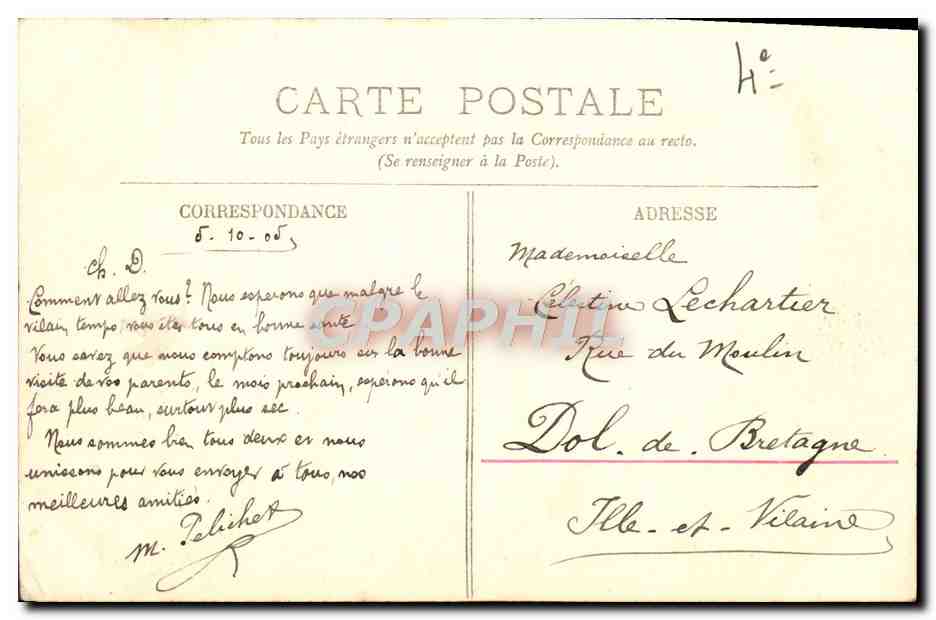 4e
CARTE POSTALE
Tous les Pays étrangers n'acceptent pas la Correspondance au recto.
(Se renseigner à la Poste).
CORRESPONDANCE
5-10-05
Ch. D.
Comment allez vous? Nous esperons que malgre le
vilain temps, vous êtes tous en bonne santé
Vous savez que nous comptons toujours sur la bonne
visite de vos parents, le mois prochain, esperons qu'il
fera plus beau, surtout plus sec.
Nous sommes bien tous deux et nous
unissons pour vous envoyer à tous, nos
meilleures amitiés.
M. Pelichet
ADRESSE
Mademoiselle
Célestine Lechartier
Rue du Moulin
Dol. de. Bretagne
Ille-et-Vilaine
CPAPHIL